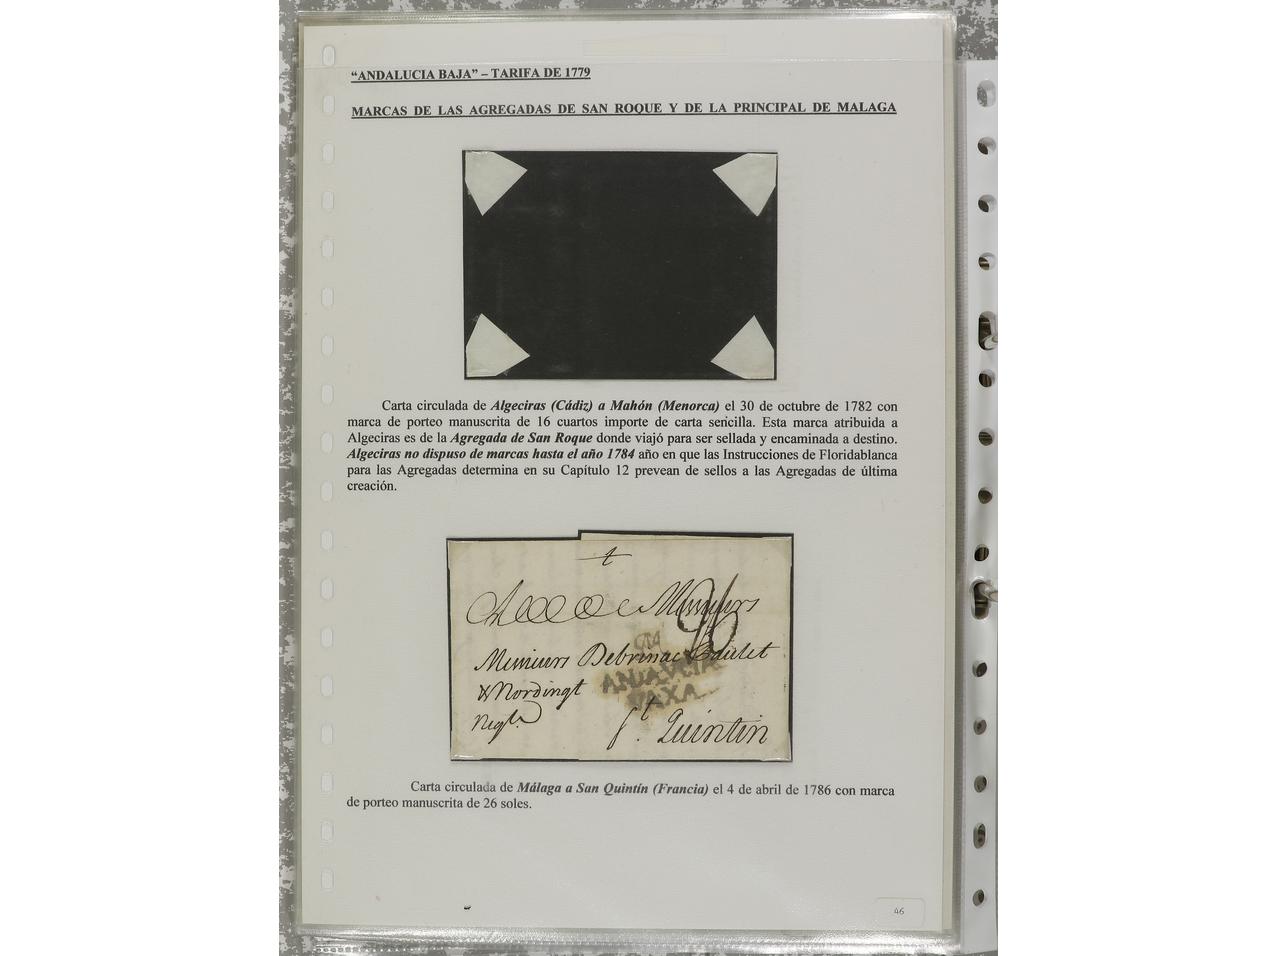 “ANDALUCIA BAJA” – TARIFA DE 1779
MARCAS DE LAS AGREGADAS DE SAN ROQUE Y DE LA PRINCIPAL DE MALAGA
Carta circulada de Algeciras (Cádiz) a Mahón (Menorca) el 30 de octubre de 1782 con
marca de porteo manuscrita de 16 cuartos importe de carta sencilla. Esta marca atribuida a
Algeciras es de la Agregada de San Roque donde viajó para ser sellada y encaminada a destino.
Algeciras no dispuso de marcas hasta el año 1784 año en que las Instrucciones de Floridablanca
para las Agregadas determina en su Capítulo 12 prevean de sellos a las Agregadas de última
creación.
26
Debrinac
ANDALVCIA
VAXA
St. Quintin
Carta circulada de Málaga a San Quintín (Francia) el 4 de abril de 1786 con marca
de porteo manuscrita de 26 soles.
46